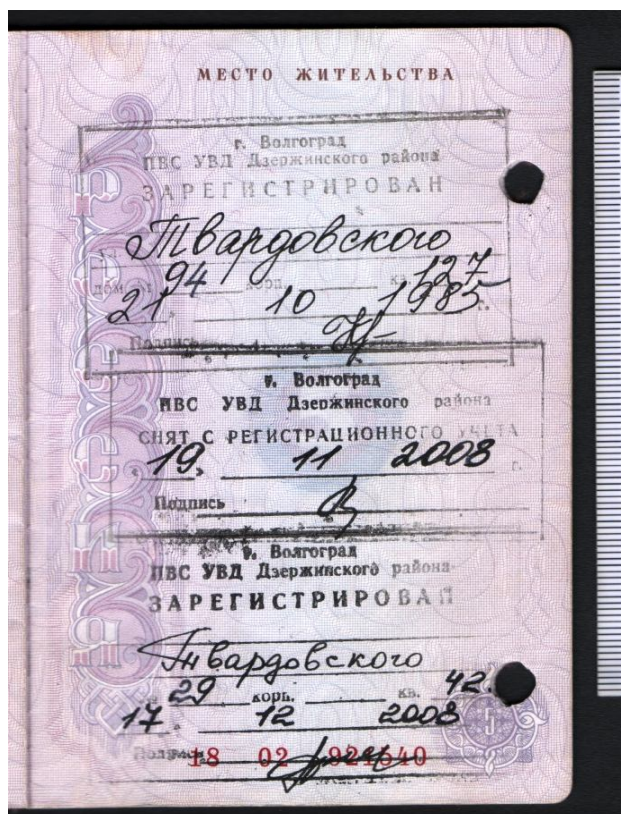 МЕСТО ЖИТЕЛЬСТВА
г. Волгоград
ПВС УВД Дзержинского района
ЗАРЕГИСТРИРОВАН
Твардовского
дом 94 корп. кв. 127
21. 10 1985 г.
Подпись
г. Волгоград
ПВС УВД Дзержинского района
СНЯТ С РЕГИСТРАЦИОННОГО УЧЕТА
"19" 11 2008 г.
Подпись
г. Волгоград
ПВС УВД Дзержинского района
ЗАРЕГИСТРИРОВАН
Твардовского
29 корп. кв. 42.
17. 12 2008
Подпись
18 02 921540
5